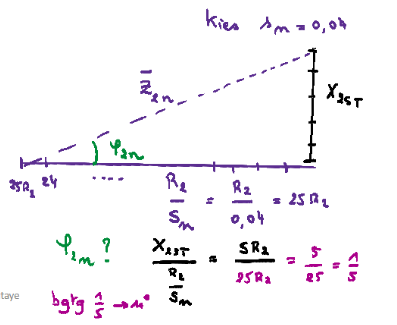 kies s_n = 0,04
Z̄_2n
X_2ST
φ_2n
25R_2 24 ....
R_2/S_n = R_2/0,04 = 25R_2
φ_2n ? X_2ST / (R_2/S_n) = 5R_2/25R_2 = 5/25 = 1/5
bgtg 1/5 → 11°
taye